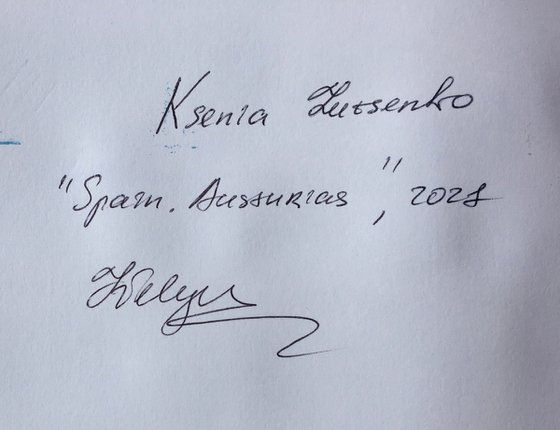 Ksenia Lutsenko
"Spain. Austurias", 2021